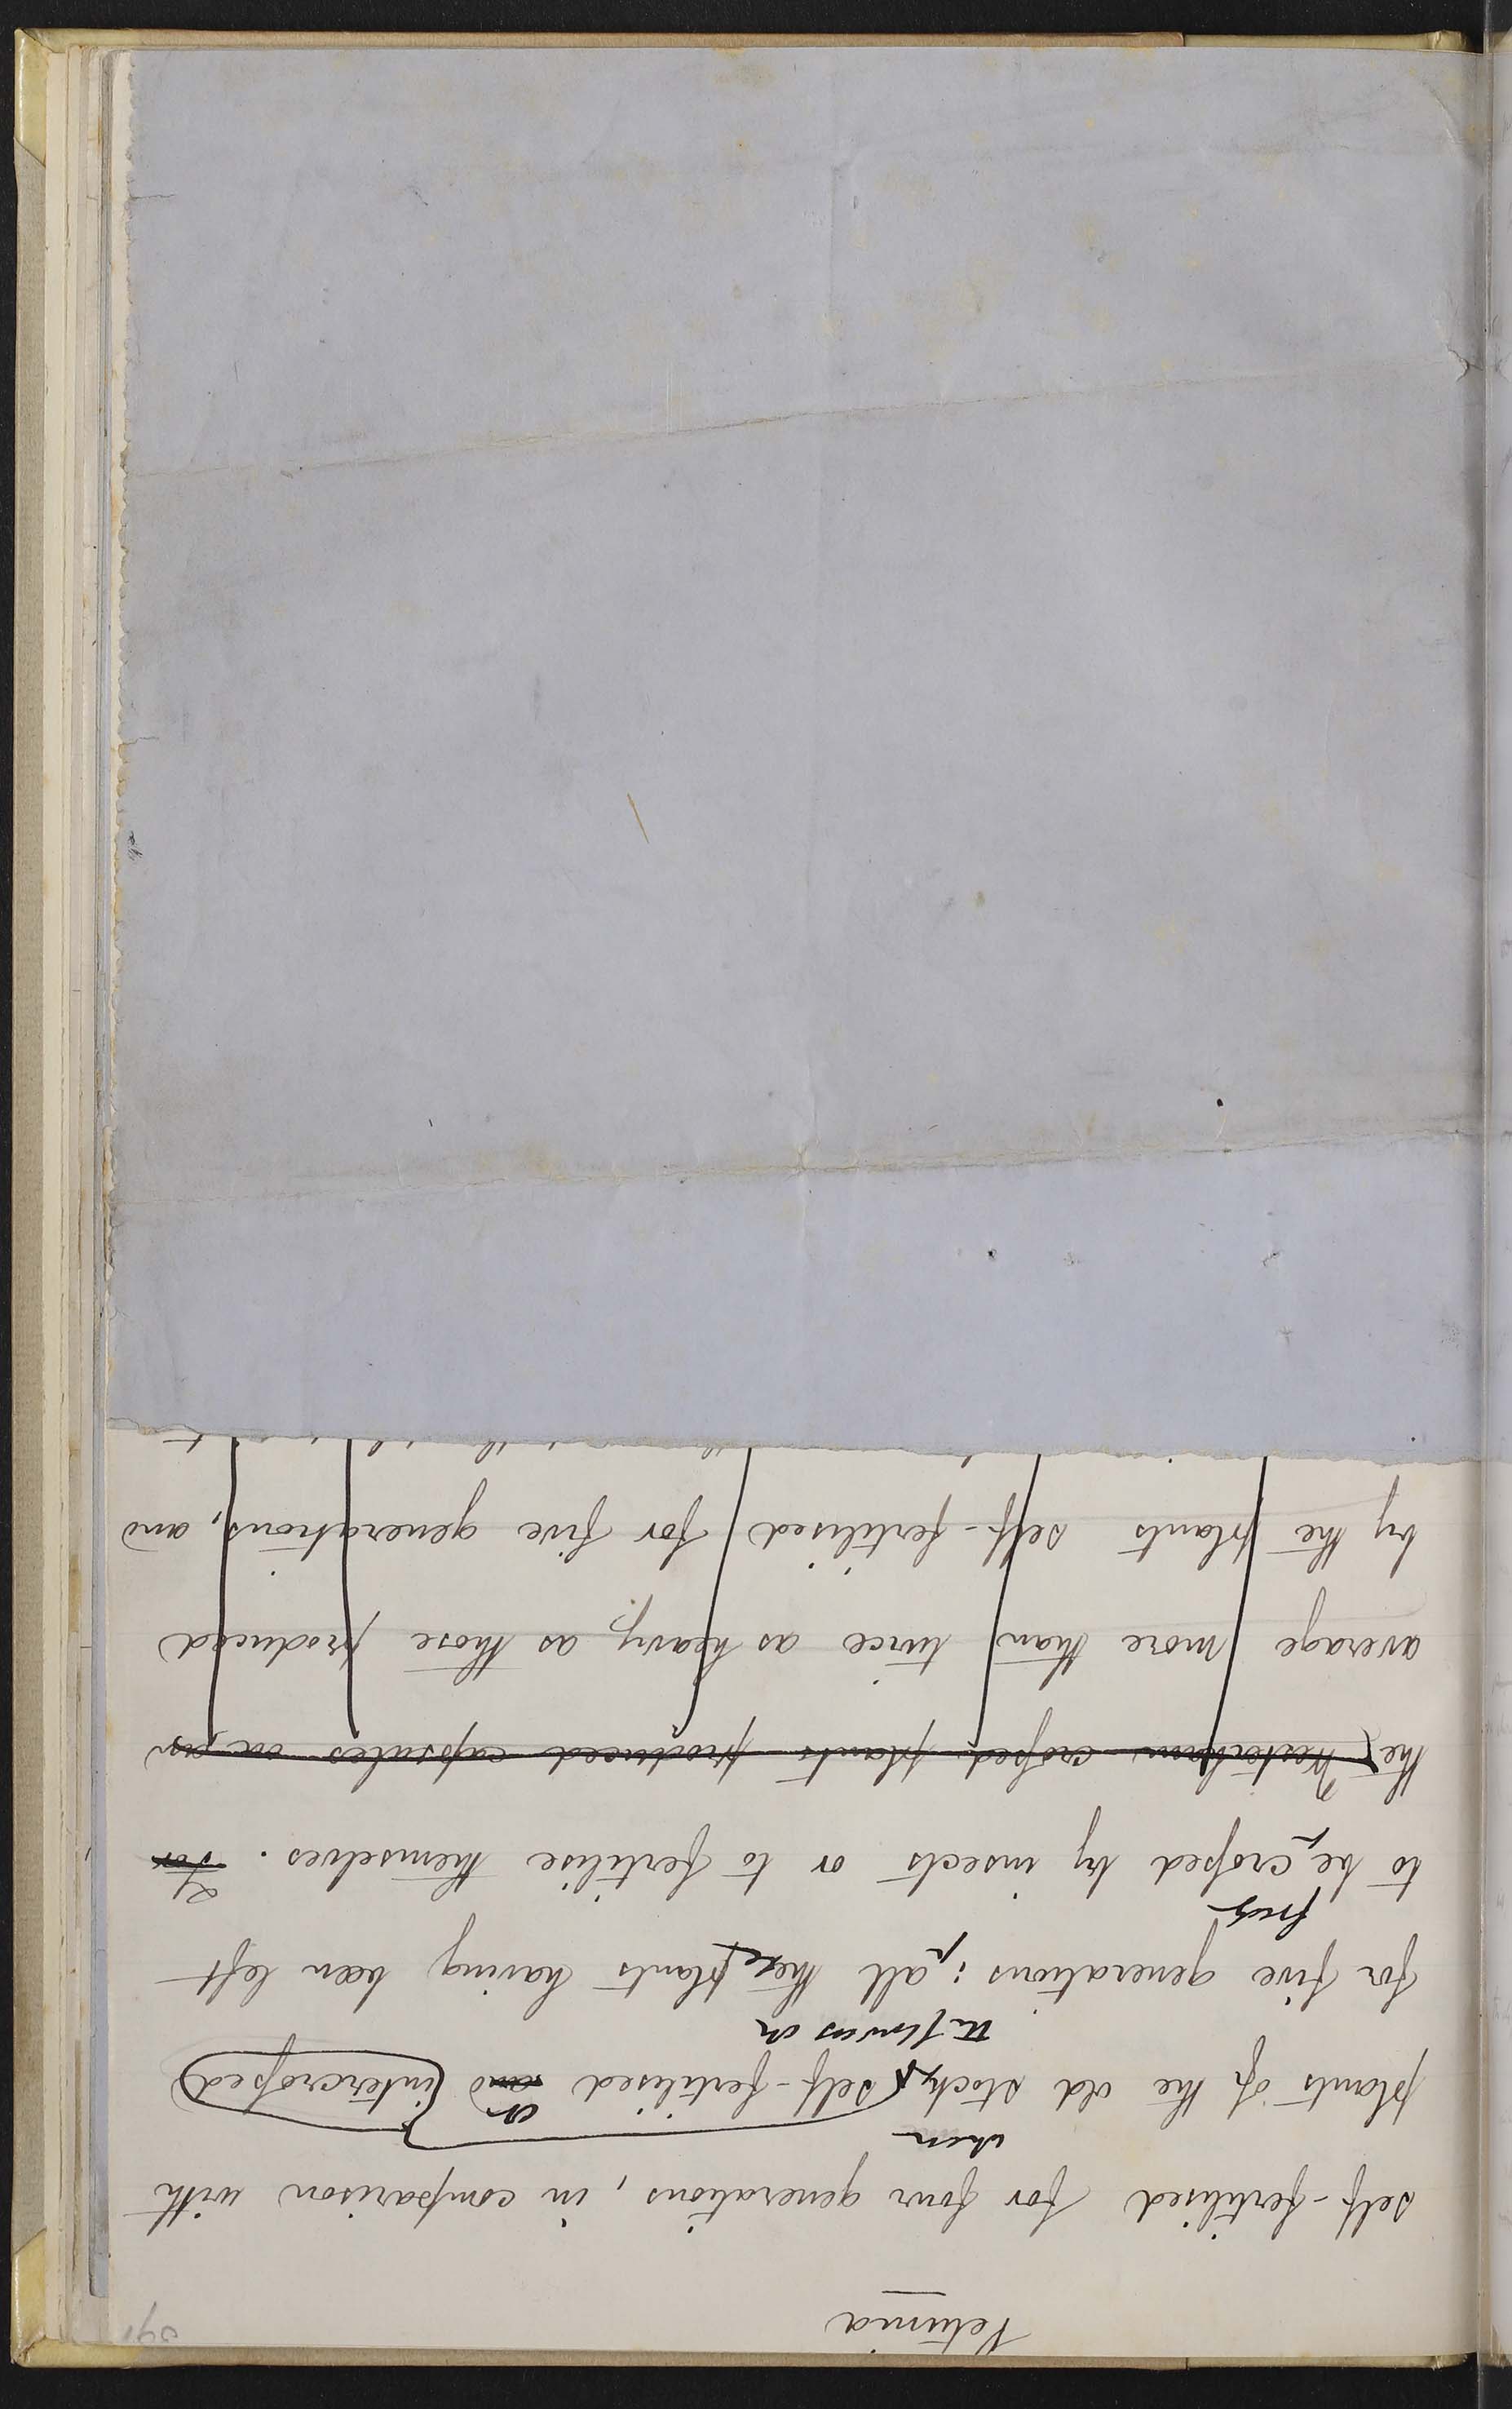 Petunia
self-fertilised for four generations, in comparison with
when
plants of the old stock, self-fertilised and intercrossed
or
the flowers on
for five generations; all these plants having been left
freely
to be crossed by insects or to fertilise themselves. For
the Westerham crossed plants produced capsules on
average more than twice as heavy as those produced
by the plants self-fertilised for five generations, and